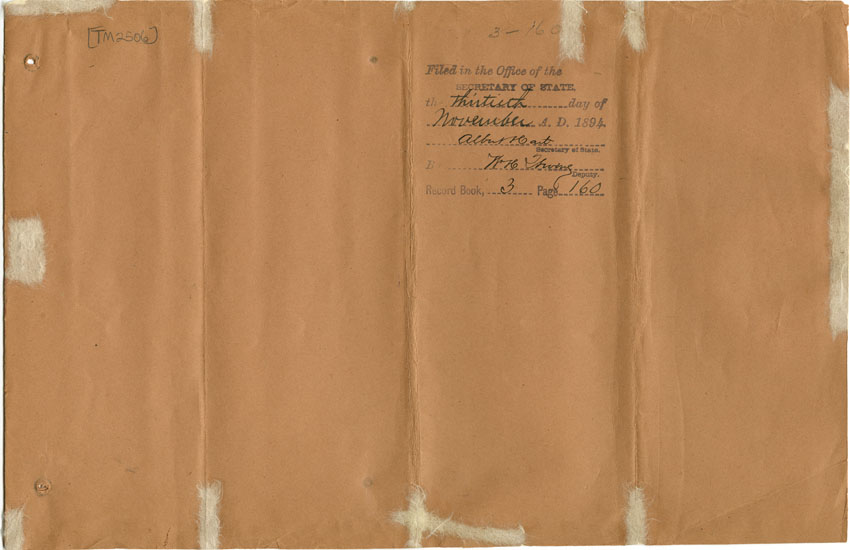 [TM2306]
3-160
Filed in the Office of the
SECRETARY OF STATE,
the thirtieth day of
November A. D. 1894
Albert Hart
Secretary of State.
B W. H. 
Deputy.
Record Book, 3 Page 160